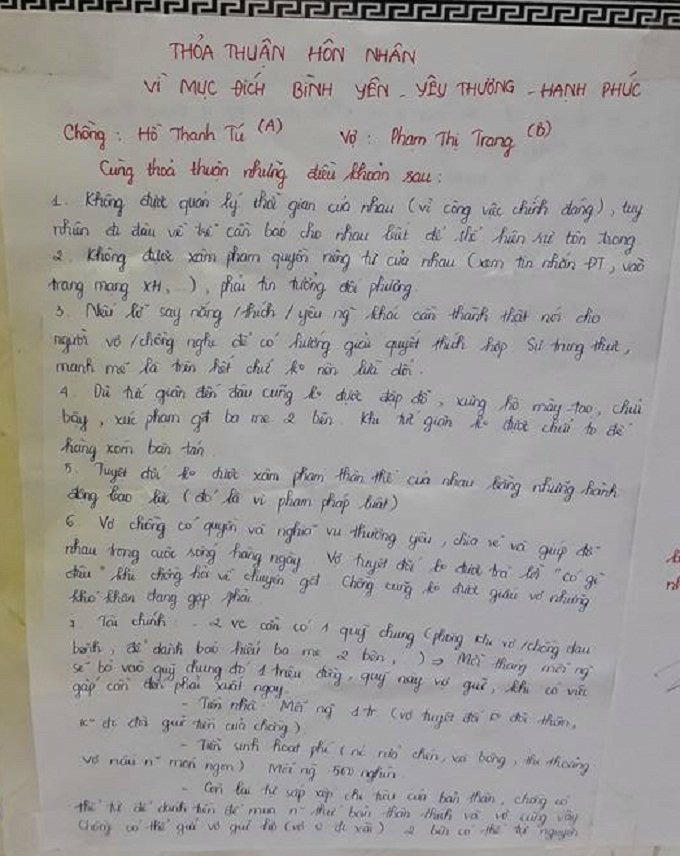 THỎA THUẬN HÔN NHÂN
VÌ MỤC ĐÍCH BÌNH YÊN - YÊU THƯƠNG - HẠNH PHÚC
Chồng : Hồ Thanh Tú (A) Vợ : Phạm Thị Trang (B)
Cùng thoả thuận những điều khoản sau :
1. Không được quản lý thời gian của nhau (vì công việc chính đáng), tuy
nhiên đi đâu về trễ cần báo cho nhau biết để thể hiện sự tôn trọng
2. Không được xâm phạm quyền riêng tư của nhau (xem tin nhắn ĐT, vào
trang mạng XH, ..), phải tin tưởng đối phương.
3. Nếu lỡ say nắng / thích / yêu ng khác cần thành thật nói cho
người vợ / chồng nghe để có hướng giải quyết thích hợp Sự trung thực,
mạnh mẽ là trên hết chứ ko nên lừa dối.
4. Dù tức giận đến đâu cũng ko được đập đồ, xưng hô mày-tao, chửi
bậy, xúc phạm gđ ba mẹ 2 bên. Khi tức giận ko được chửi to để
hàng xóm bàn tán.
5. Tuyệt đối ko được xâm phạm thân thể của nhau bằng những hành
động bạo lực (đó là vi phạm pháp luật)
6. Vợ chồng có quyền và nghĩa vụ thương yêu, chia sẻ và giúp đỡ
nhau trong cuộc sống hàng ngày Vợ tuyệt đối ko được trả lời "có gì
đâu" khi chồng hỏi về chuyện gđ. Chồng cũng ko được giấu vợ những
khó khăn đang gặp phải.
7 Tài chính : - 2 vc cần có 1 quỹ chung (phòng khi vợ/chồng đau
bệnh, để dành báo hiếu ba mẹ 2 bên, ) ⇒ Mỗi tháng mỗi ng
sẽ bỏ vào quỹ chung đó 1 triệu đồng, quỹ này vợ giữ, khi có việc
gấp cần đến phải xuất ngay.
- Tiền nhà : Mỗi ng 1 tr (vợ tuyệt đối ko
đi đòi giữ tiền của chồng)
- Tiền sinh hoạt phí ( xà bông, thi thoảng
vợ nấu n~ món ngon) Mỗi ng 500 nghìn
- Còn lại tự sắp xếp chi tiêu của bản thân, chồng có
thể tự để dành tiền để mua n~ thứ bản thân thích và vợ cũng vậy
Chồng có thể gửi vợ giữ hộ (vợ o đc xài) 2 bên có thể tự nguyện